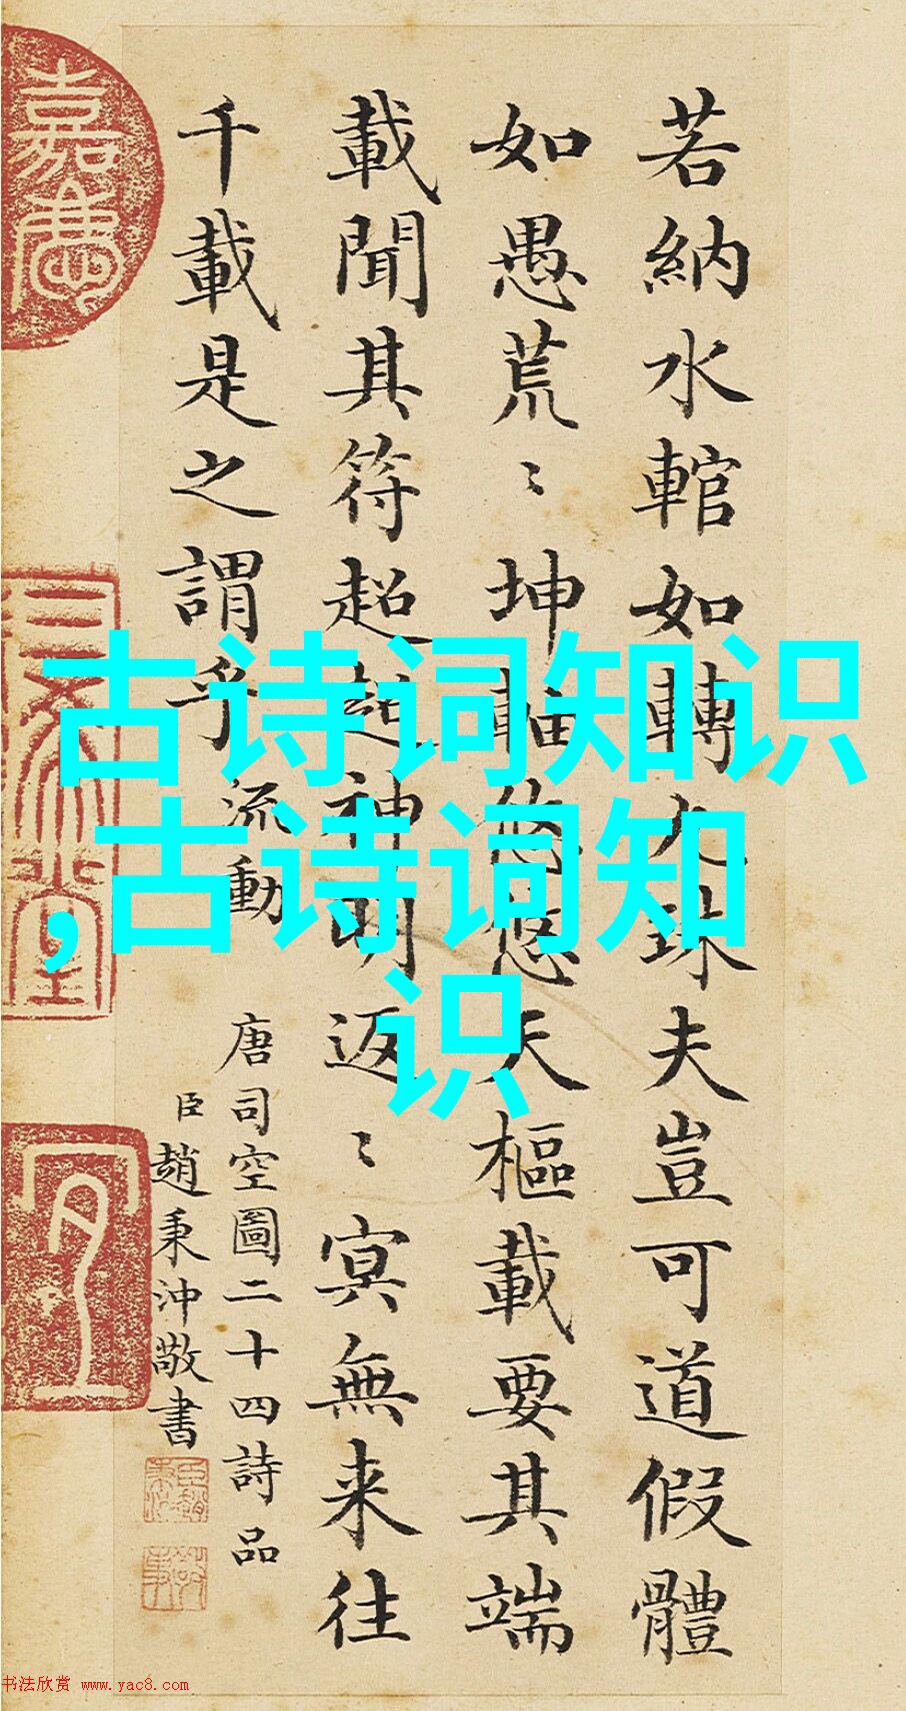 古诗词知识
,古诗词知
识
若納水輨如轉丸珠夫豈可道假體
如愚荒〻坤軸悠悠天樞載要其端
載聞其符超超神明返〻冥無来往
千載是之謂乎 流動
唐司空圖二十四詩品
臣趙秉沖敬書
嘉慶
三希堂
书法欣赏 www.yac8.com